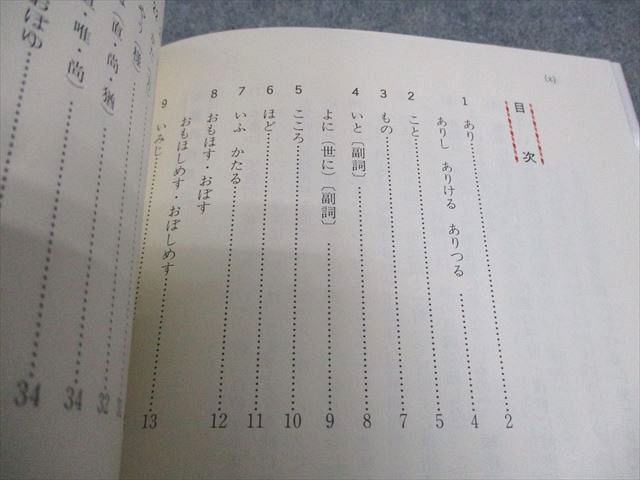 (x)
目次
1 あり……2
ありし ありける ありつる……4
2 こと……5
3 もの……7
4 いと〔副詞〕……8
よに(世に)〔副詞〕……9
5 こころ……10
6 ほど……11
7 いふ かたる……12
8 おもほす・おぼす
おもほしめす・おぼしめす……13
9 いみじ
(直・尚・猶)……32
(直・唯・尚)……34
おぼゆ……34